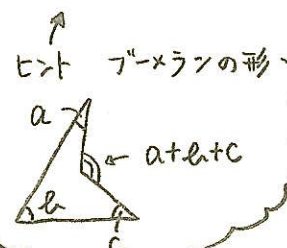 ヒント ブーメランの形
a
a+b+c
b
c